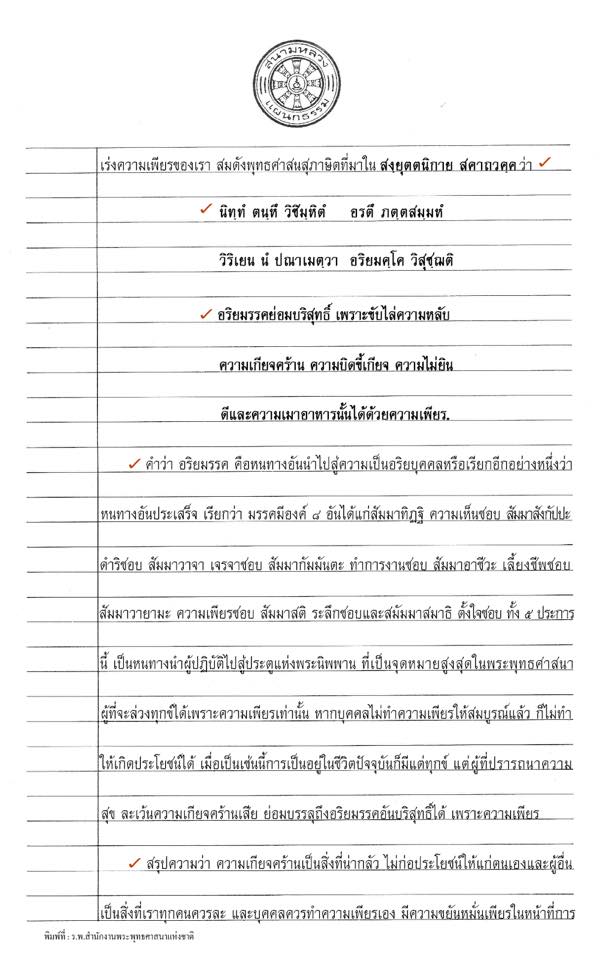 สนามหลวง
แผนกธรรม
เร่งความเพียรของเรา สมดังพุทธศาสนสุภาษิตที่มาใน สงฺยุตตนิกาย สคาถวคฺค ว่า
นิทฺทํ ตนฺทึ วิชิมฺหิตํ อรตึ ภตฺตสมฺมทํ
วิริเยน นํ ปณาเมตฺวา อริยมคฺโค วิสุชฺฌติ
อริยมรรคย่อมบริสุทธิ์ เพราะขับไล่ความหลับ
ความเกียจคร้าน ความบิดขี้เกียจ ความไม่ยิน
ดีและความเมาอาหารนั้นได้ด้วยความเพียร.
คำว่า อริยมรรค คือหนทางอันนำไปสู่ความเป็นอริยบุคคลหรือเรียกอีกอย่างหนึ่งว่า
หนทางอันประเสริ็จ เรียกว่า มรรคมีองค์ ๘ อันได้แก่สัมมาทิฏฐิ ความเห็นชอบ สัมมาสังกัปปะ
ดำริชอบ สัมมาวาจา เจรจาชอบ สัมมากัมมันตะ ทำการงานชอบ สัมมาอาชีวะ เลี้ยงชีพชอบ
สัมมาวายามะ ความเพียรชอบ สัมมาสติ ระลึกชอบและสมัมมาสมาธิ ตั้งใจชอบ ทั้ง ๕ ประการ
นี้ เป็นหนทางนำผู้ปฏิบัติไปสู่ประตูแห่งพระนิพพาน ที่เป็นจุดหมายสูงสุดในพระพุทธศาสนา
ผู้ที่จะล่วงทุกข์ได้เพราะความเพียรเท่านั้น หากบุคคลไม่ทำความเพียรให้สมบูรณ์แล้ว ก็ไม่ทำ
ให้เกิดประโยชน์ได้ เมื่อเป็นเช่นนี้การเป็นอยู่ในชีวิตปัจจุบันก็มีแต่ทุกข์ แต่ผู้ที่ปรารถนาความ
สุข ละเว้นความเกียจคร้านเสีย ย่อมบรรลุถึงอริยมรรคอันบริสุทธิ์ได้ เพราะความเพียร
สรุปความว่า ความเกียจคร้านเป็นสิ่งที่น่ากลัว ไม่ก่อประโยชน์ให้แก่ตนเองและผู้อื่น
เป็นสิ่งที่เราทุกคนควรละ และบุคคลควรทำความเพียรเอง มีความขยันหมั่นเพียรในหน้าที่การ
พิมพ์ที่ : ร.พ.สำนักงานพระพุทธศาสนาแห่งชาติ